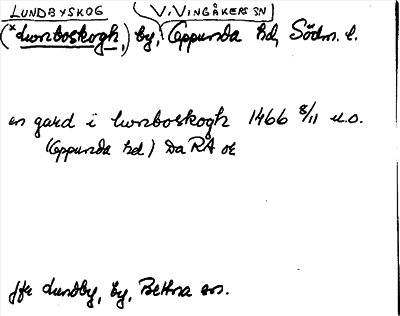 LUNDBYSKOG V. VINGÅKERS SN
(*Lunboskogh,) by, Oppunda hd, Södm. l.
en gard i lwnboskogh 1466 8/11 u.o.
(Oppunda hd) Da RA or
Jfr Lundby, by, Bettna sn.